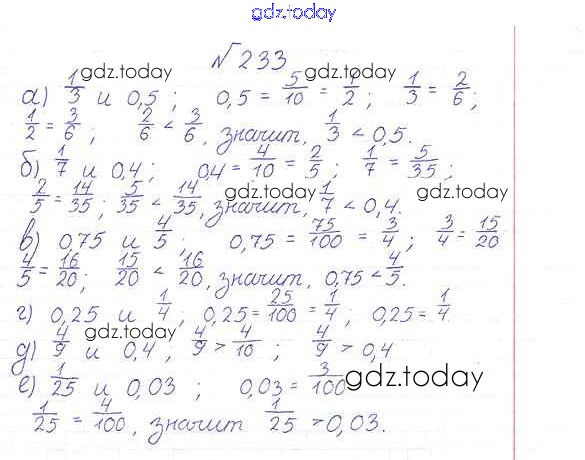 gdz.today
√233
gdz.today gdz.today
а) 1/3 и 0,5; 0,5 = 5/10 = 1/2; 1/3 = 2/6;
1/2 = 3/6; 2/6 < 3/6, значит, 1/3 < 0,5.
б) 1/7 и 0,4; 0,4 = 4/10 = 2/5; 1/7 = 5/35;
gdz.today gdz.today
2/5 = 14/35; 5/35 < 14/35, значит, 1/7 < 0,4.
в) 0,75 и 4/5; 0,75 = 75/100 = 3/4; 3/4 = 15/20
4/5 = 16/20; 15/20 < 16/20, значит, 0,75 < 4/5.
г) 0,25 и 1/4; 0,25 = 25/100 = 1/4; 0,25 = 1/4.
gdz.today gdz.today
д) 4/9 и 0,4; 4/9 > 4/10; 4/9 > 0,4
е) 1/25 и 0,03; 0,03 = 3/100
gdz.today
1/25 = 4/100, значит 1/25 > 0,03.